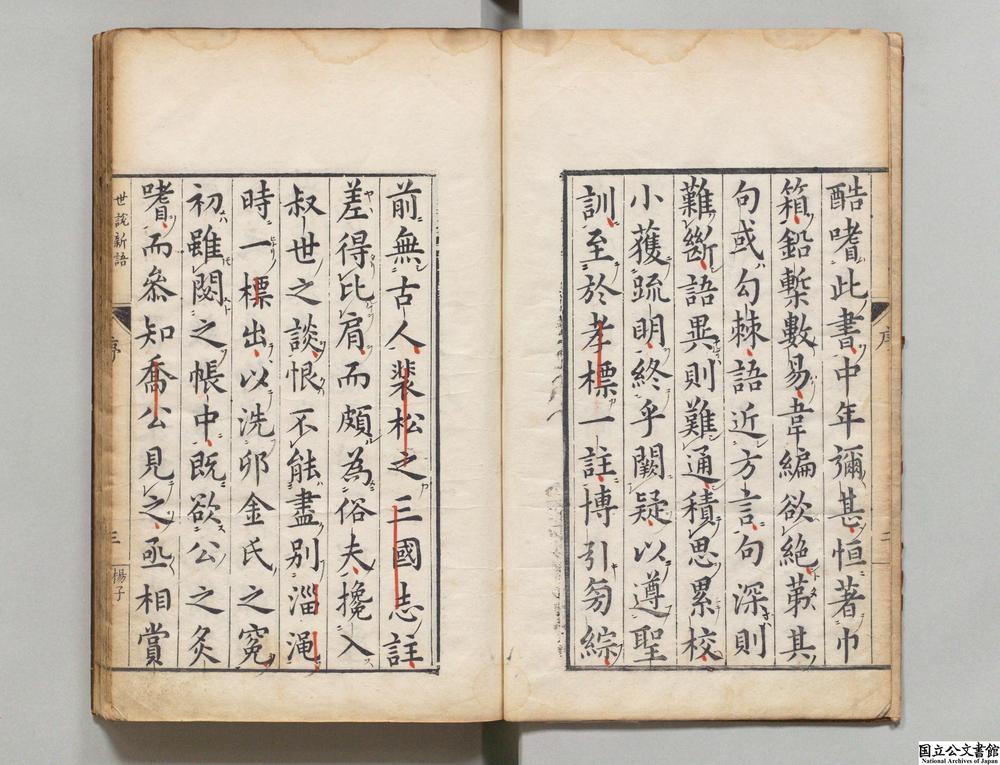 酷嗜此書中年彌甚恒著巾
箱鉛槧數易韋編欲絕苐其
句或勾棘語近方言句深則
難斷語異則難通積思累校
小獲疏明終乎闕疑以遵聖
訓至於孝標一註博引旁綜
序
二
前無古人裴松之三國志註
差得比肩而頗為俗夫攙入
叔世之談恨不能盡別淄澠
時一標出以洗卯金氏之冤
初雖閟之帳中既欲公之炙
嗜而叅知喬公見之亟相賞
世說新語
序
三
楊子
国立公文書館
National Archives of Japan